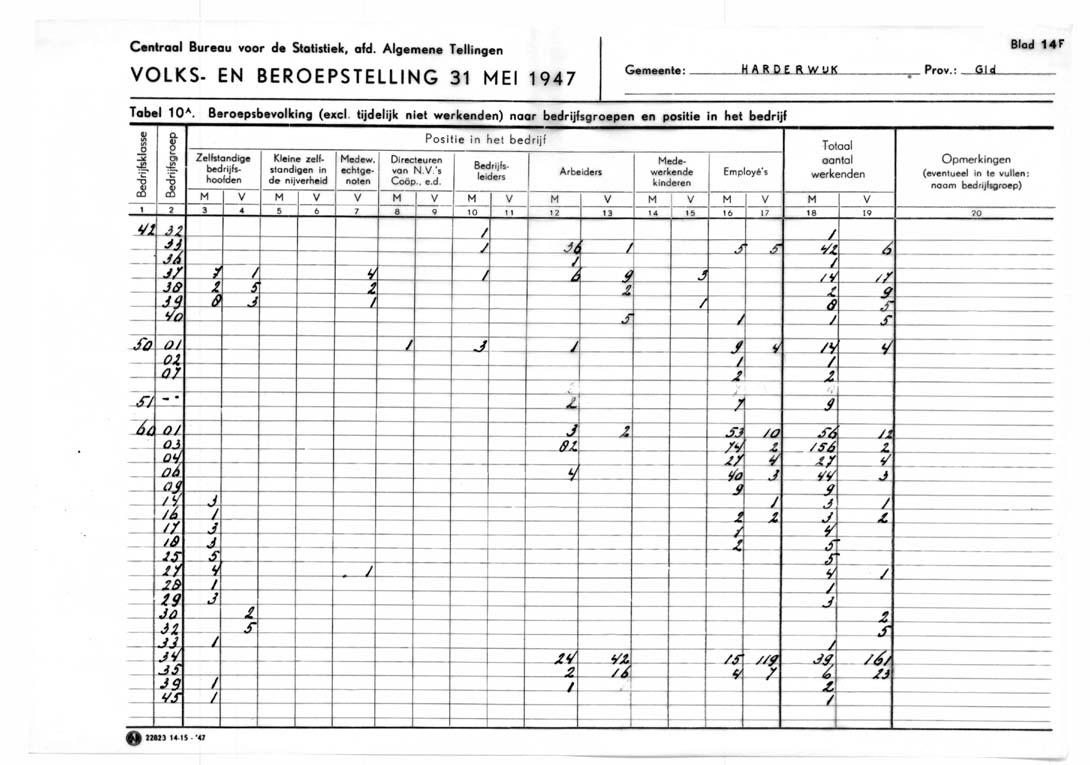 Blad 14F
Centraal Bureau voor de Statistiek, afd. Algemene Tellingen
VOLKS- EN BEROEPSTELLING 31 MEI 1947
Gemeente: HARDERWIJK Prov.: Gld
Tabel 10A. Beroepsbevolking (excl. tijdelijk niet werkenden) naar bedrijfsgroepen en positie in het bedrijf
Bedrijfsklasse Bedrijfsgroep Positie in het bedrijf Totaal aantal werkenden Opmerkingen (eventueel in te vullen: naam bedrijfsgroep)
Zelfstandige bedrijfs- hoofden Kleine zelf- standigen in de nijverheid Medew. echtge- noten Directeuren van N.V.'s Coöp., e.d. Bedrijfs- leiders Arbeiders Mede- werkende kinderen Employé's
M V M V V M V M V M V M V M V M V
1 2 3 4 5 6 7 8 9 10 11 12 13 14 15 16 17 18 19 20
42 32 1 1
33 1 36 1 5 5 42 6
36 1 1
37 7 1 4 1 6 9 3 14 17
38 2 5 2 2 2 9
39 8 3 1 1 8 5
40 5 1 1 5
50 01 1 3 1 9 4 14 4
02 1 1
07 2 2
51 -- 2 7 9
60 01 3 2 53 10 56 12
03 82 74 2 156 2
04 27 4 27 4
06 4 40 3 44 3
09 9 9
14 3 1 3 1
16 1 2 2 3 2
17 3 1 4
18 3 2 5
25 5 5
27 4 1 4 1
28 1 1
29 3 3
30 2 2
32 5 5
33 1 1
34 24 42 15 119 39 161
35 2 16 4 7 6 23
39 1 1 2
45 1 1
22823 14-15 - '47